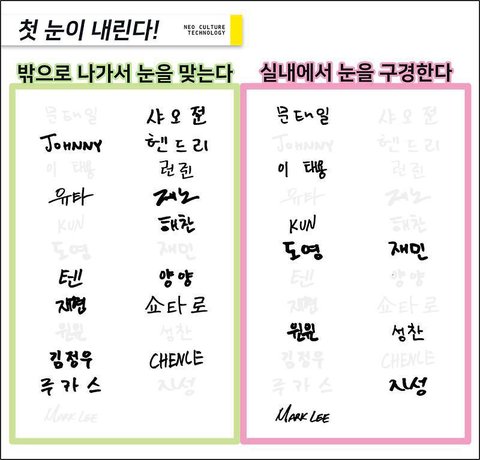 첫 눈이 내린다!
NEO CULTURE
TECHNOLOGY
밖으로 나가서 눈을 맞는다
문태일 샤오쥔
JOHNNY 헨드리
이 태용 런쥔
유타 제노
KUN 해찬
도영 재민
텐 양양
재현 쇼타로
윈윈 성찬
김정우 CHENLE
루카스 지성
MARK LEE
실내에서 눈을 구경한다
문태일 샤오쥔
JOHNNY 헨드리
이 태용 런쥔
유타 제노
KUN 해찬
도영 재민
텐 양양
재현 쇼타로
윈윈 성찬
김정우 CHENLE
루카스 지성
MARK LEE